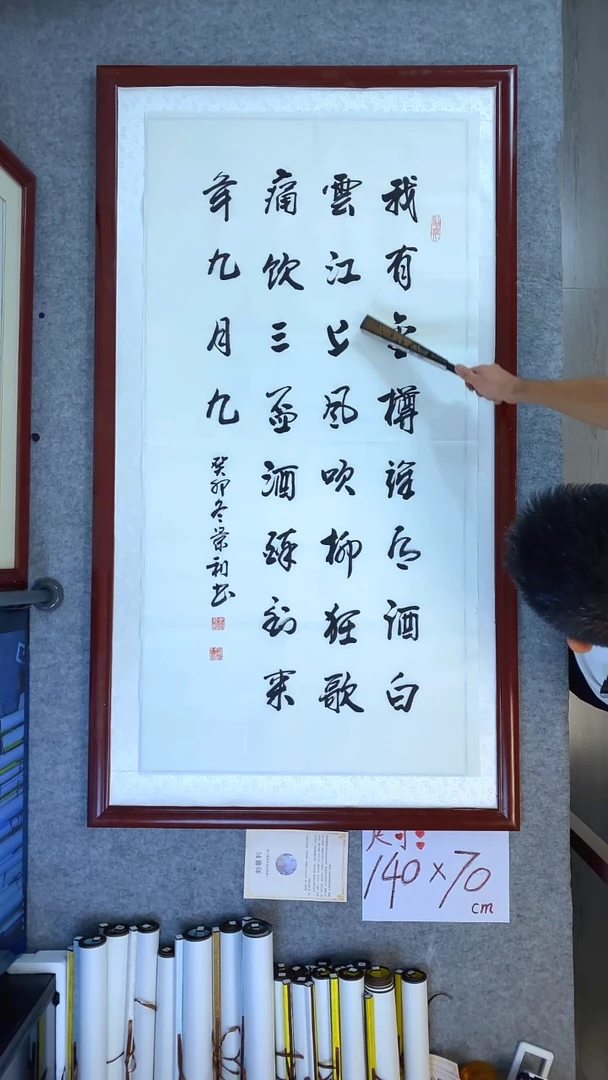 我有金樽谁酒白
雲江上风吹柳狂歌
痛饮三酒醉到来
年九月九
癸卯冬荣利书
刘荣利
尺寸:
140×70
cm